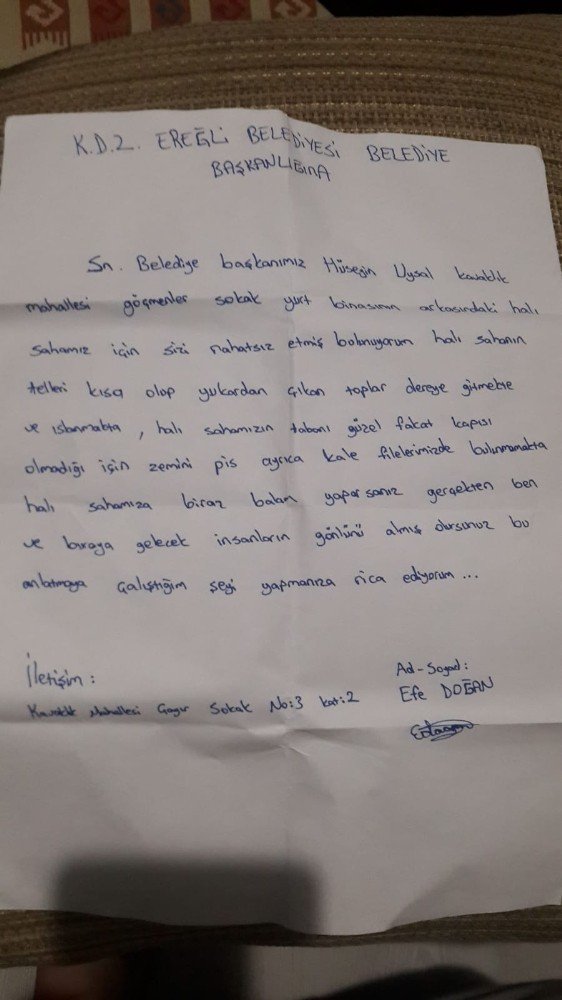 K.D.Z. EREĞLİ BELEDİYESİ BELEDİYE
BAŞKANLIĞINA
Sn. Belediye başkanımız Hüseyin Uysal kavaklık
mahallesi göçmenler sokak yurt binasının arkasındaki halı
sahamız için sizi rahatsız etmiş bulunuyorum halı sahanın
telleri kısa olup yukardan çıkan toplar dereye gitmekte
ve ıslanmakta, halı sahamızın tabanı güzel fakat kapısı
olmadığı için zemini pis ayrıca kale filelerimizde bulunmamakta
halı sahamıza biraz bakım yaparsanız gerçekten ben
ve buraya gelecek insanların gönlünü almış olursunuz bu
anlatmaya çalıştığım şeyi yapmanıza rica ediyorum...
İletişim:
Ad-Soyad:
Efe DOĞAN
Kavaklık Mahallesi Sokak No:3 kat:2